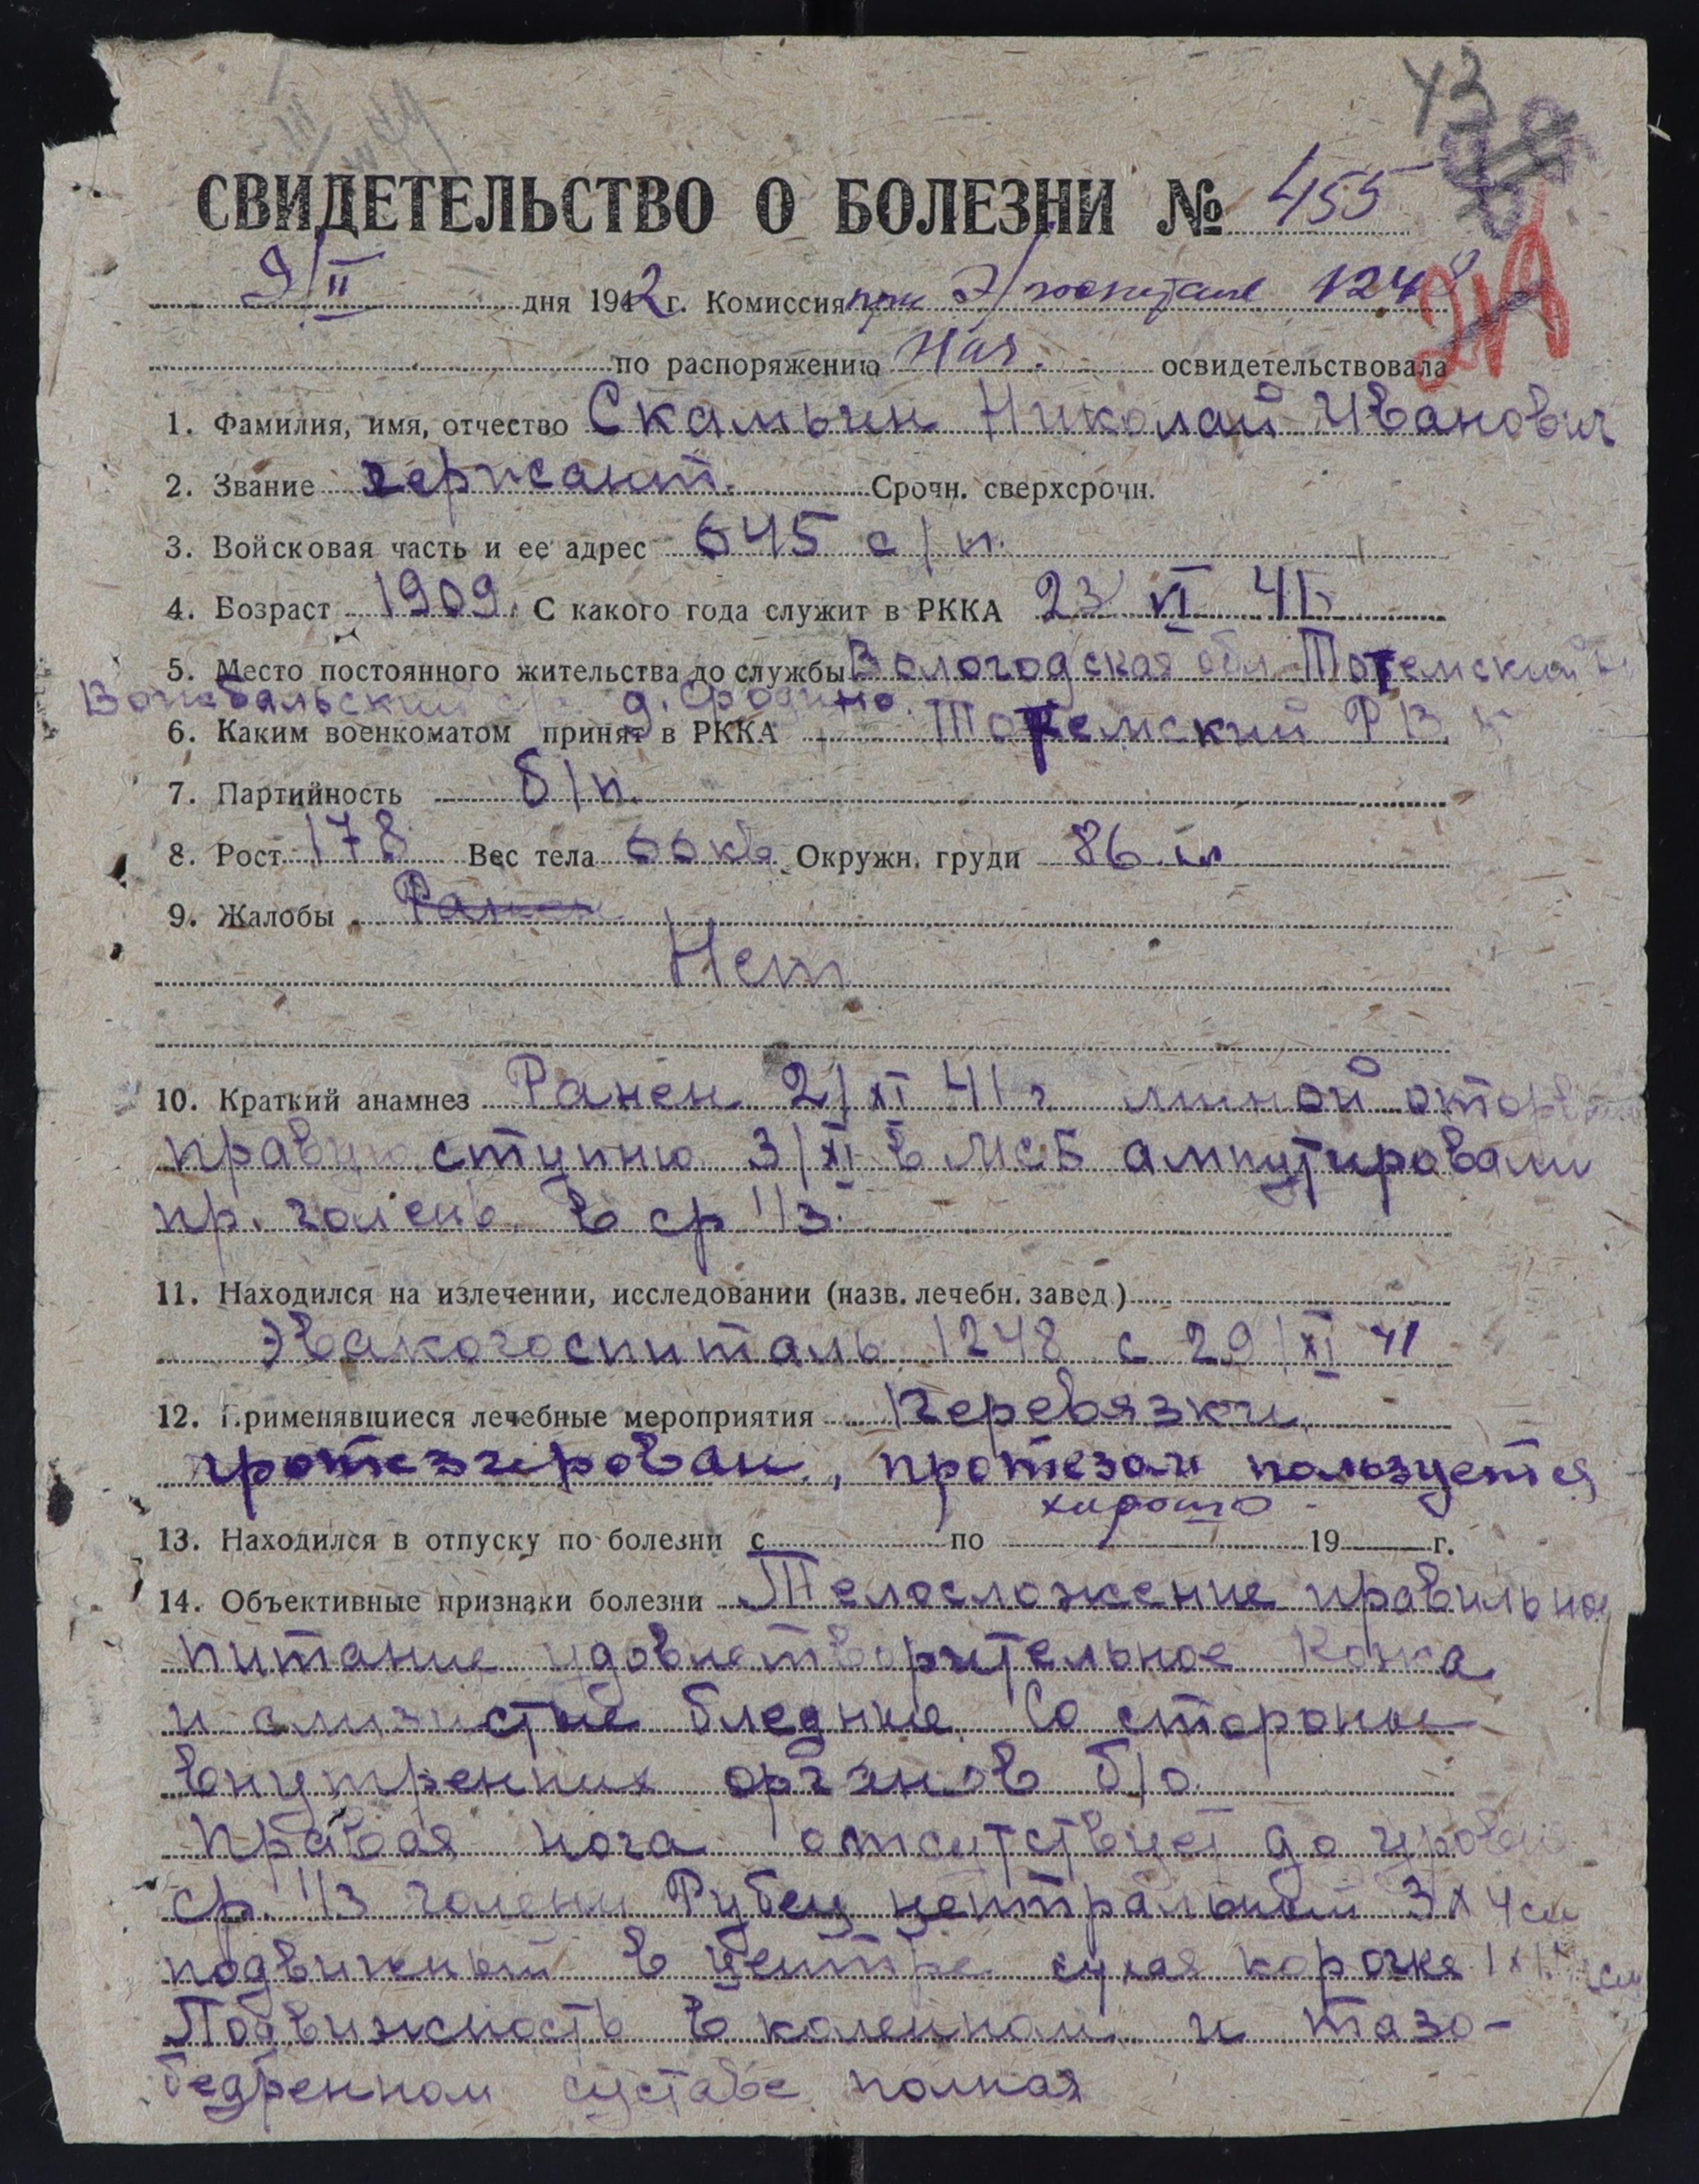 43
СВИДЕТЕЛЬСТВО О БОЛЕЗНИ № 455
9/II дня 1942 г. Комиссия при Э/госпитале 1248
по распоряжению Нач. освидетельствовала
1. Фамилия, имя, отчество Скамьин Николай Иванович
2. Звание сержант. Срочн. сверхсрочн.
3. Войсковая часть и ее адрес 645 с/п.
4. Возраст 1909. С какого года служит в РККА 23 VI 41г
5. Место постоянного жительства до службы Вологодская обл Тотемский
Вожбальский с/с д.
6. Каким военкоматом принят в РККА Тотемский РВК
7. Партийность б/п.
8. Рост 178 Вес тела 66 кг Окружн. груди 86 см
9. Жалобы
Нет
10. Краткий анамнез Ранен 2/XI 41 г миной оторв
правую ступню 3/XI в МСБ ампутировали
пр. голень в ср 1/3.
11. Находился на излечении, исследовании (назв. лечебн. завед.)
Эвакогоспиталь 1248 с 29/XI 41
12. Применявшиеся лечебные мероприятия перевязки
протезирован, протезом пользуется
хорошо
13. Находился в отпуску по болезни с по 19 г.
14. Объективные признаки болезни Телосложение правильное
питание удовлетворительное Кожа
и слизистые бледные. Со стороны
внутренних органов б/о.
Правая нога отсутствует до уровня
ср. 1/3 голени Рубец центральный 3x4 см
подвижный в центре сухая корочка 1x1 см
Подвижность в коленном и тазо-
бедренном суставе полная